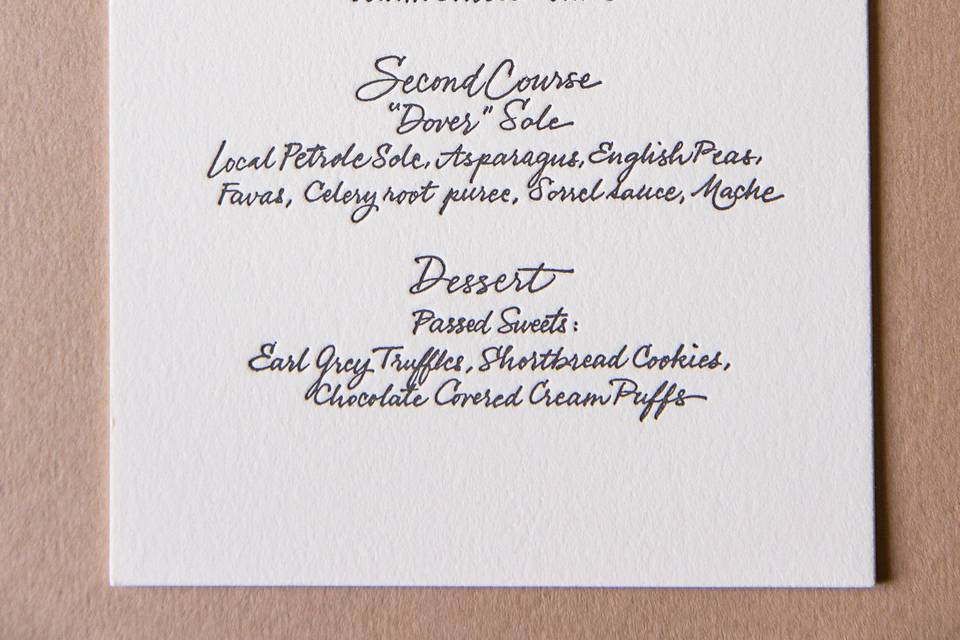 Second Course
"Dover" Sole
Local Petrole Sole, Asparagus, English Peas,
Favas, Celery root puree, Sorrel sauce, Mache
Dessert
Passed Sweets:
Earl Grey Truffles, Shortbread Cookies,
Chocolate Covered Cream Puffs